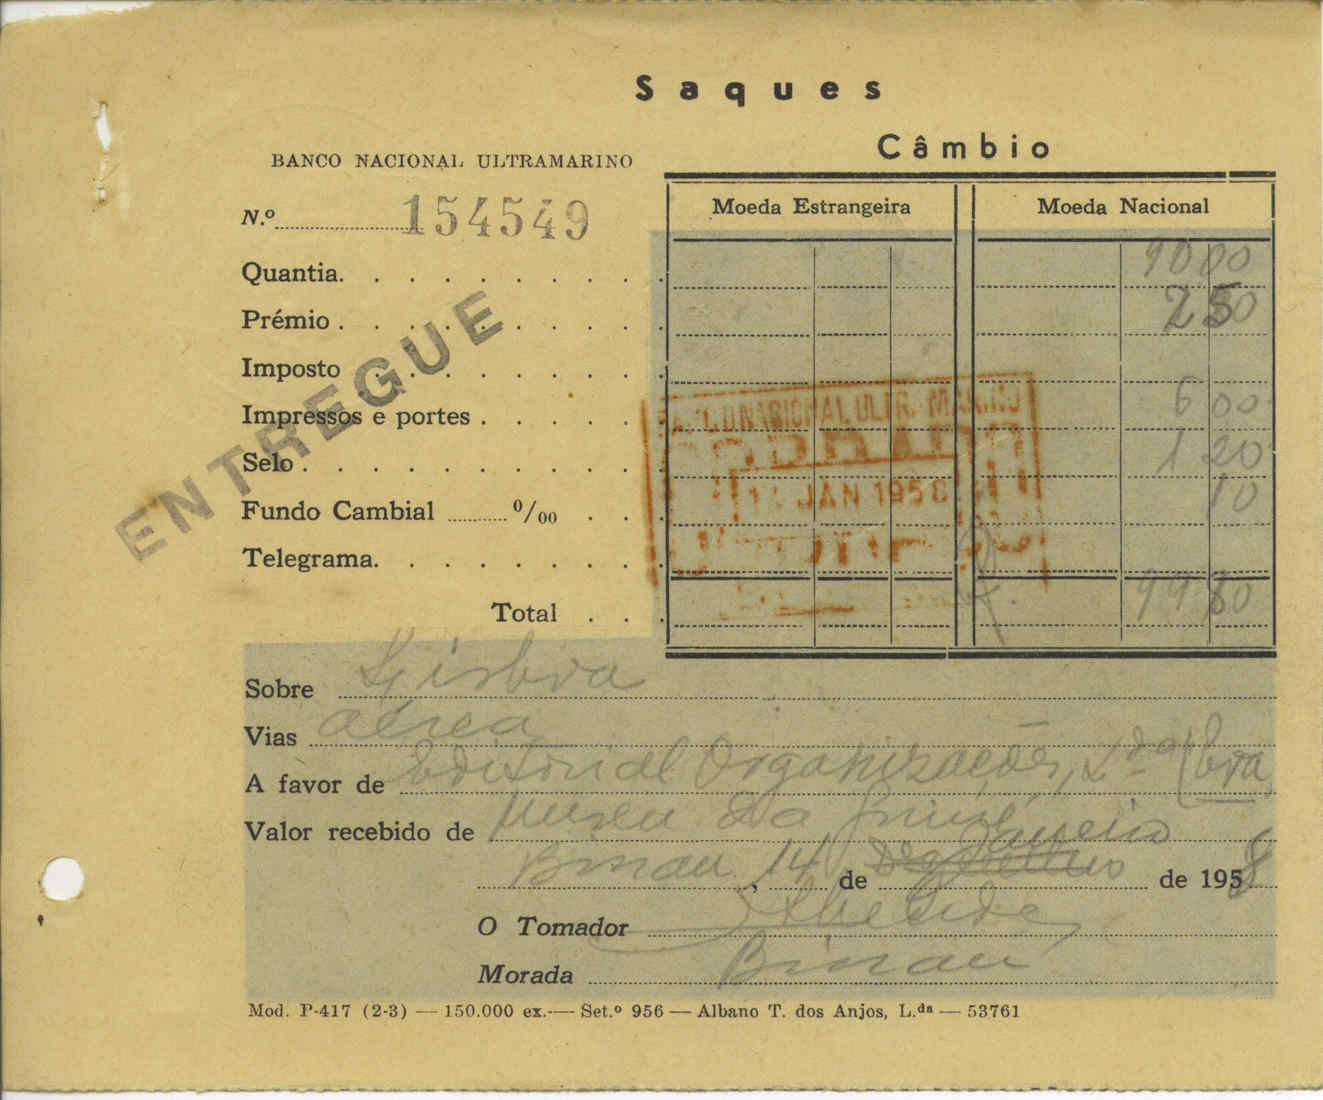 Saques
Câmbio
BANCO NACIONAL ULTRAMARINO
N.º 154549
Moeda Estrangeira Moeda Nacional
Quantia 90 00
Prémio 2 50
Imposto
Impressos e portes 6 00
Selo 1 20
Fundo Cambial 0/00 10
Telegrama
Total 99 80
ENTREGUE
NACIONAL ULTRAMARINO
COBRADO
JAN 1958
Sobre Lisboa
Vias aérea
A favor de Editorial Organizações, L.da
Valor recebido de Museu da Guiné
Janeiro
Bissau, 14 de Dezembro de 1958
O Tomador
Morada Bissau
Mod. P-417 (2-3) — 150.000 ex. — Set.º 956 — Albano T. dos Anjos, L.da — 53761